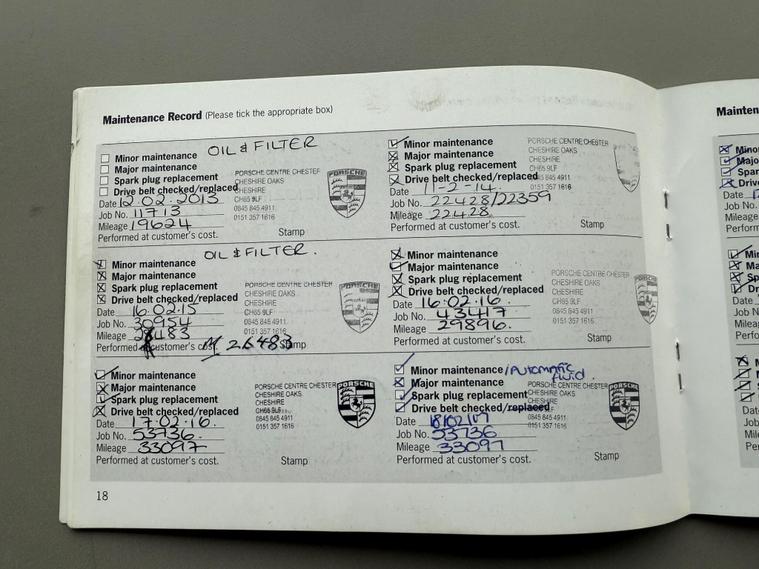 Maintenance Record (Please tick the appropriate box)
OIL & FILTER
Minor maintenance
Major maintenance
Spark plug replacement
Drive belt checked/replaced
PORSCHE CENTRE CHESTER
CHESHIRE OAKS
CHESHIRE
CH65 9LF
0845 845 4911
0151 357 1616
PORSCHE
Date 12.02.2013
Job No. 11713
Mileage 19624
Performed at customer's cost.
Stamp
Minor maintenance
Major maintenance
Spark plug replacement
Drive belt checked/replaced
PORSCHE CENTRE CHESTER
CHESHIRE OAKS
CHESHIRE
CH65 9LF
0845 845 4911
0151 357 1616
Date 11-2-14.
Job No. 22428/22359
Mileage 22428
Performed at customer's cost.
Stamp
OIL & FILTER.
Minor maintenance
Major maintenance
Spark plug replacement
Drive belt checked/replaced
PORSCHE CENTRE CHESTER
CHESHIRE OAKS
CHESHIRE
CH65 9LF
0845 845 4911
0151 357 1616
Date 16.02.15
Job No. 30954
Mileage
Performed at customer's cost.
26483
Stamp
Minor maintenance
Major maintenance
Spark plug replacement
Drive belt checked/replaced
PORSCHE CENTRE CHESTER
CHESHIRE OAKS
CHESHIRE
CH65 9LF
0845 845 4911
0151 357 1616
Date 16.02.16.
Job No. 43417
Mileage 29896.
Performed at customer's cost.
Stamp
Minor maintenance
Major maintenance
Spark plug replacement
Drive belt checked/replaced
PORSCHE CENTRE CHESTER
CHESHIRE OAKS
CHESHIRE
CH65 9LF
0845 845 4911
0151 357 1616
PORSCHE
Date 17.02.16.
Job No. 53736.
Mileage 33097
Performed at customer's cost.
Stamp
Minor maintenance /Automatic
Major maintenance fluid.
Spark plug replacement
Drive belt checked/replaced
PORSCHE CENTRE CHESTER
CHESHIRE OAKS
CHESHIRE
0845 845 4911
0151 357 1616
PORSCHE
Date 18/02/17
Job No. 53736
Mileage 33097
Performed at customer's cost.
Stamp
18